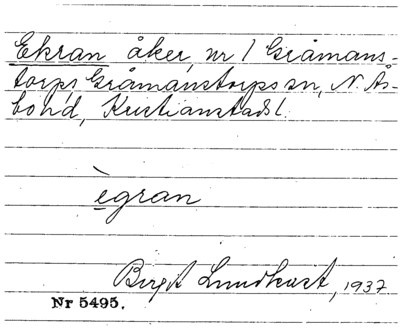 Ekran åker, nr 1 Gråmans-
torps, Gråmanstorps sn, N. Ås-
bo hd, Kristianstads l.
ègran
Birgit Lundkvist, 1937
Nr 5495.